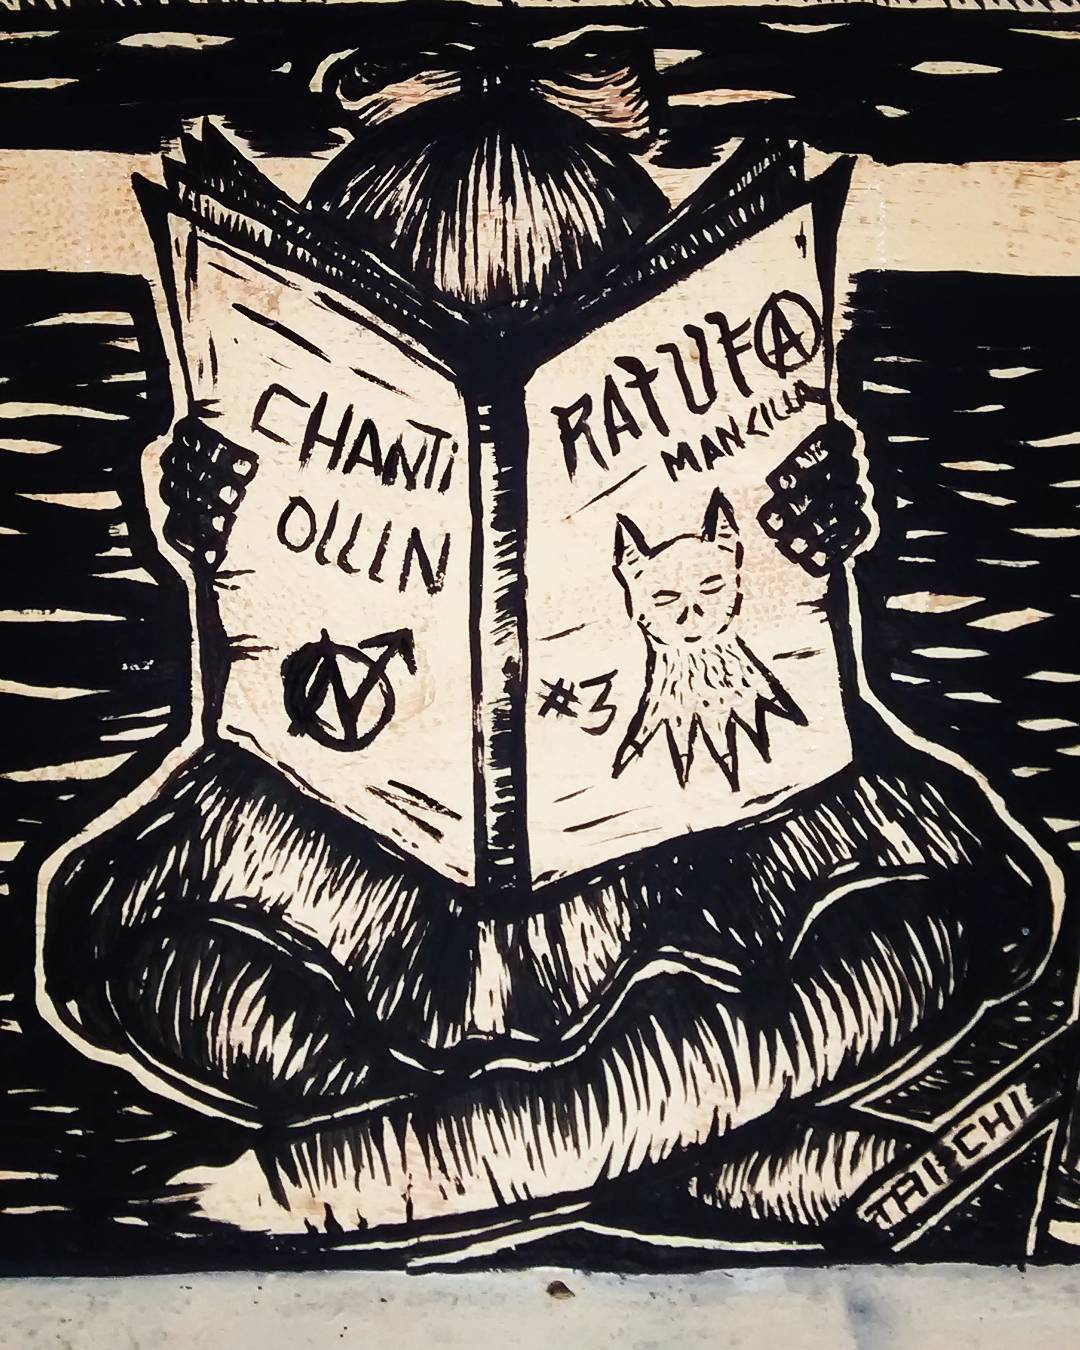 CHANTI
OLLIN
RATUFⒶ
MANCILLA
#3
TAI CHI